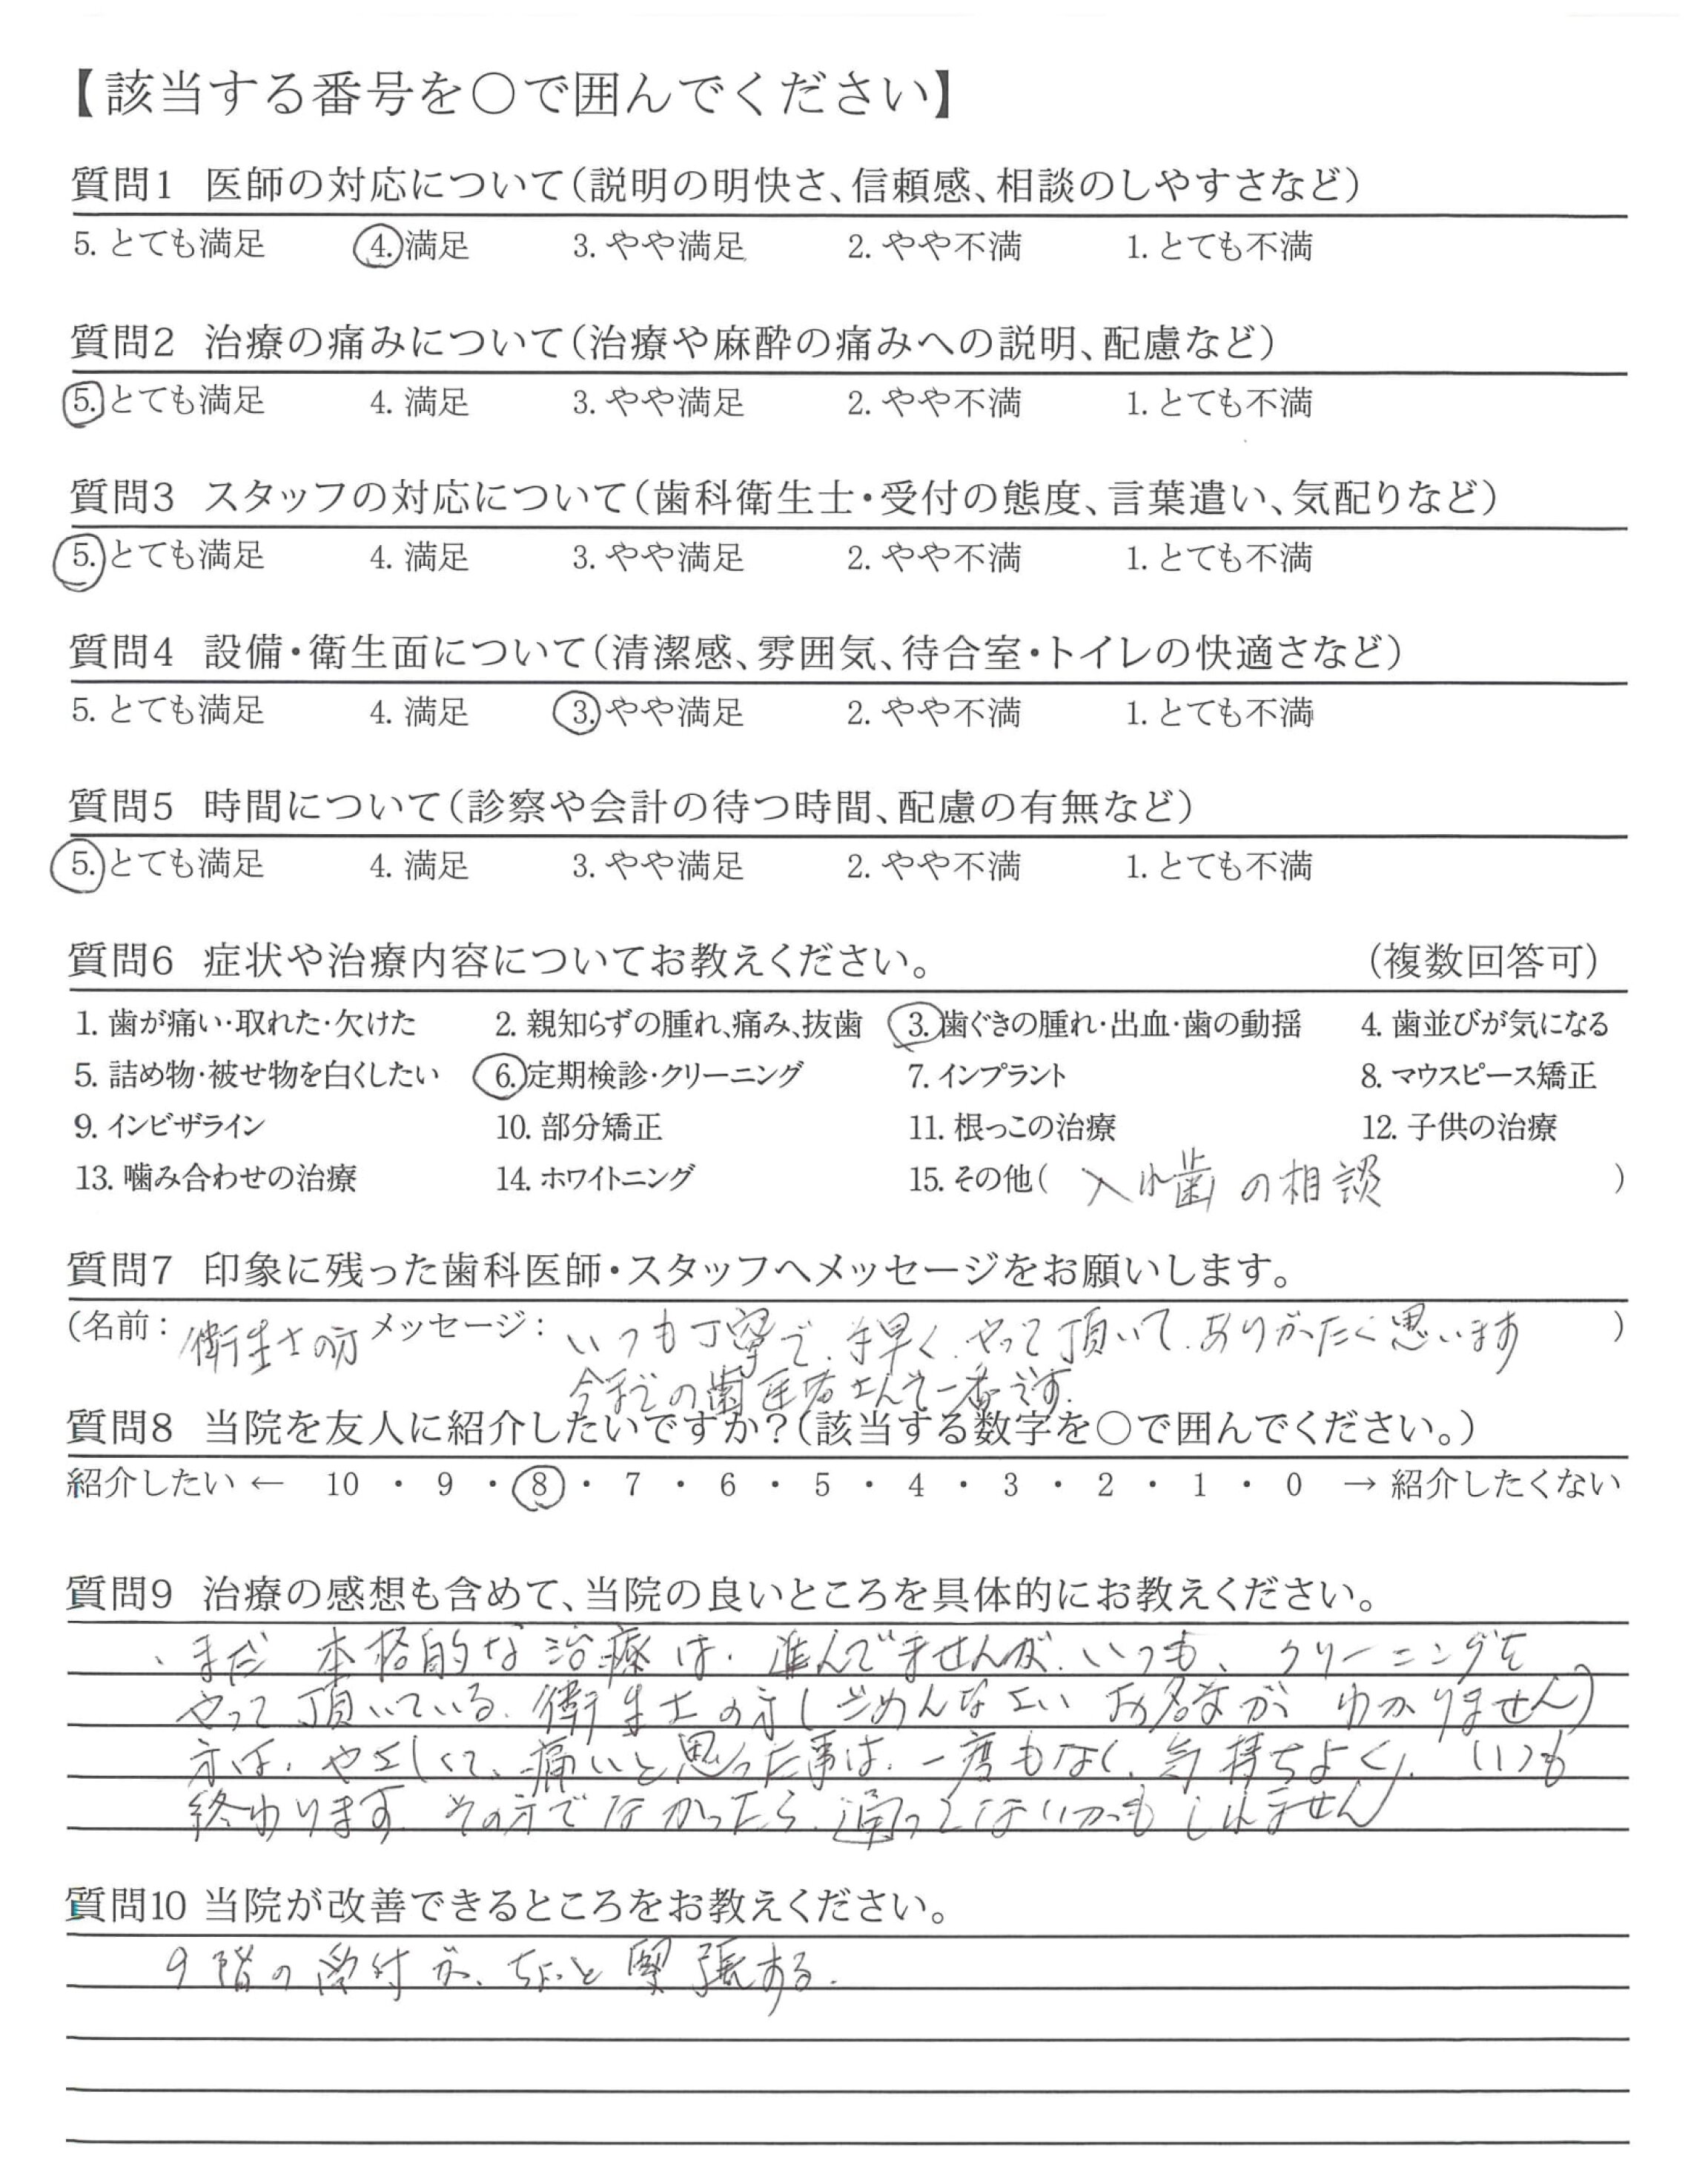 【該当する番号を○で囲んでください】
質問1 医師の対応について(説明の明快さ、信頼感、相談のしやすさなど)
5. とても満足 4. 満足 3. やや満足 2. やや不満 1. とても不満
質問2 治療の痛みについて(治療や麻酔の痛みへの説明、配慮など)
5. とても満足 4. 満足 3. やや満足 2. やや不満 1. とても不満
質問3 スタッフの対応について(歯科衛生士・受付の態度、言葉遣い、気配りなど)
5. とても満足 4. 満足 3. やや満足 2. やや不満 1. とても不満
質問4 設備・衛生面について(清潔感、雰囲気、待合室・トイレの快適さなど)
5. とても満足 4. 満足 3. やや満足 2. やや不満 1. とても不満
質問5 時間について(診察や会計の待つ時間、配慮の有無など)
5. とても満足 4. 満足 3. やや満足 2. やや不満 1. とても不満
質問6 症状や治療内容についてお教えください。 (複数回答可)
1. 歯が痛い・取れた・欠けた 2. 親知らずの腫れ、痛み、抜歯 3. 歯ぐきの腫れ・出血・歯の動揺 4. 歯並びが気になる
5. 詰め物・被せ物を白くしたい 6. 定期検診・クリーニング 7. インプラント 8. マウスピース矯正
9. インビザライン 10. 部分矯正 11. 根っこの治療 12. 子供の治療
13. 噛み合わせの治療 14. ホワイトニング 15. その他( 入れ歯の相談 )
質問7 印象に残った歯科医師・スタッフへメッセージをお願いします。
(名前: 衛生士の方 メッセージ: いつも丁寧で、手早く、やって頂いて、ありがたく思います )
今までの歯医者さんで一番です.
質問8 当院を友人に紹介したいですか?(該当する数字を○で囲んでください。)
紹介したい ← 10 ・ 9 ・ 8 ・ 7 ・ 6 ・ 5 ・ 4 ・ 3 ・ 2 ・ 1 ・ 0 → 紹介したくない
質問9 治療の感想も含めて、当院の良いところを具体的にお教えください。
、まだ 本格的な治療は、進んでませんが、いつも、クリーニングを
やって頂いている、衛生士の方(ごめんなさい お名前が わかりません)
方は、やさしくて、痛いと思った事は、一度もなく、気持ちよく、いつも
終わります. その方でなかったら、通ってないかもしれません
質問10 当院が改善できるところをお教えください。
9階の受付が、ちょっと緊張する.